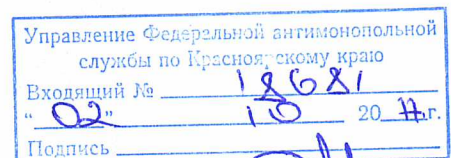 Управление Федеральной антимонопольной
службы по Красноярскому краю
Входящий № 18681
"02" 10 20 г.
Подпись